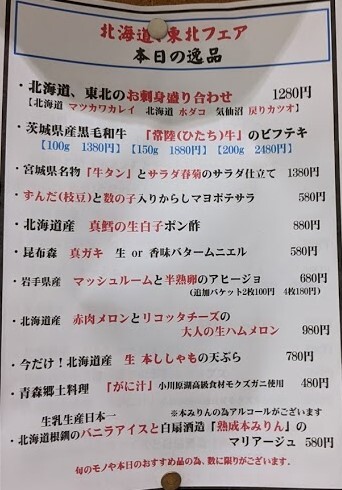 北海道・東北フェア
本日の逸品
・北海道、東北のお刺身盛り合わせ 1280円
【北海道 マツカワカレイ 北海道 水ダコ 気仙沼 戻りカツオ】
・茨城県産黒毛和牛 『常陸(ひたち)牛』のビフテキ
【100g 1380円】【150g 1880円】【200g 2480円】
・宮城県名物『牛タン』とサラダ春菊のサラダ仕立て 1380円
・ずんだ(枝豆)と数の子入りからしマヨポテサラ 580円
・北海道産 真鱈の生白子ポン酢 880円
・昆布森 真ガキ 生 or 香味バタームニエル 580円
・岩手県産 マッシュルームと半熟卵のアヒージョ 680円
(追加バケット2枚100円 4枚180円)
・北海道産 赤肉メロンとリコッタチーズの
大人の生ハムメロン 980円
・今だけ!北海道産 生 本ししゃもの天ぷら 780円
・青森郷土料理 『がに汁』小川原湖高級食材モクズガニ使用 480円
生乳生産日本一 ※本みりんの為アルコールがございます
・北海道根釧のバニラアイスと白扇酒造『熟成本みりん』の
マリアージュ 580円
旬のモノや本日のおすすめ品の為、数に限りがございます。